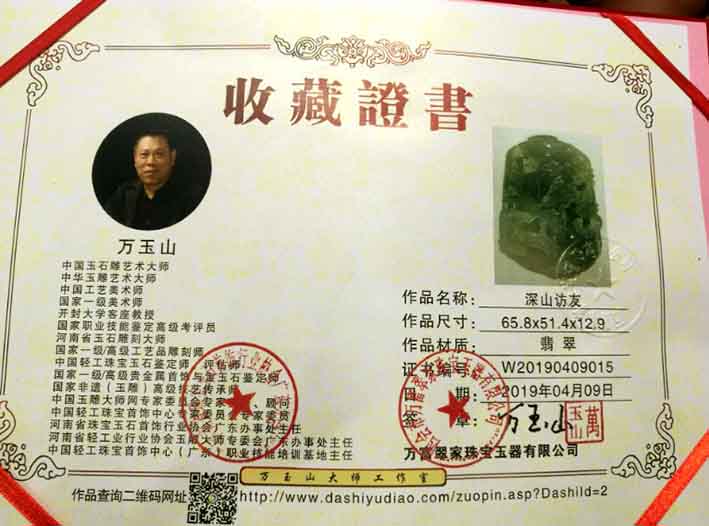 收藏證書
万玉山
中国玉石雕艺术大师
中华玉雕艺术大师
中国工艺美术师
国家一级美术师
开封大学客座教授
国家职业技能鉴定高级考评员
河南省玉石雕刻大师
国家一级/高级工艺品雕刻师
中国轻工珠宝玉石鉴定师、评估师
国家一级/高级贵金属首饰与宝玉石鉴定师
国家非遗（玉雕）高级技艺传承师
中国玉雕大师网专家委员会专家、顾问
中国轻工珠宝首饰中心专家委员会专家委员
河南省珠宝玉石首饰行业协会广东办事处主任
河南省轻工业行业协会玉雕大师专委会广东办事处主任
中国轻工珠宝首饰中心（广东）职业技能培训基地主任
作品名称：深山访友
作品尺寸：65.8x51.4x12.9
作品材质：翡翠
证书编号：W20190409015
日期：2019年04月09日
签章：万玉山
萬玉山
万富翠家珠宝玉器有限公司
万玉山大师工作室
作品查询二维码网址 http://www.dashiyudiao.com/zuopin.asp?DashiId=2